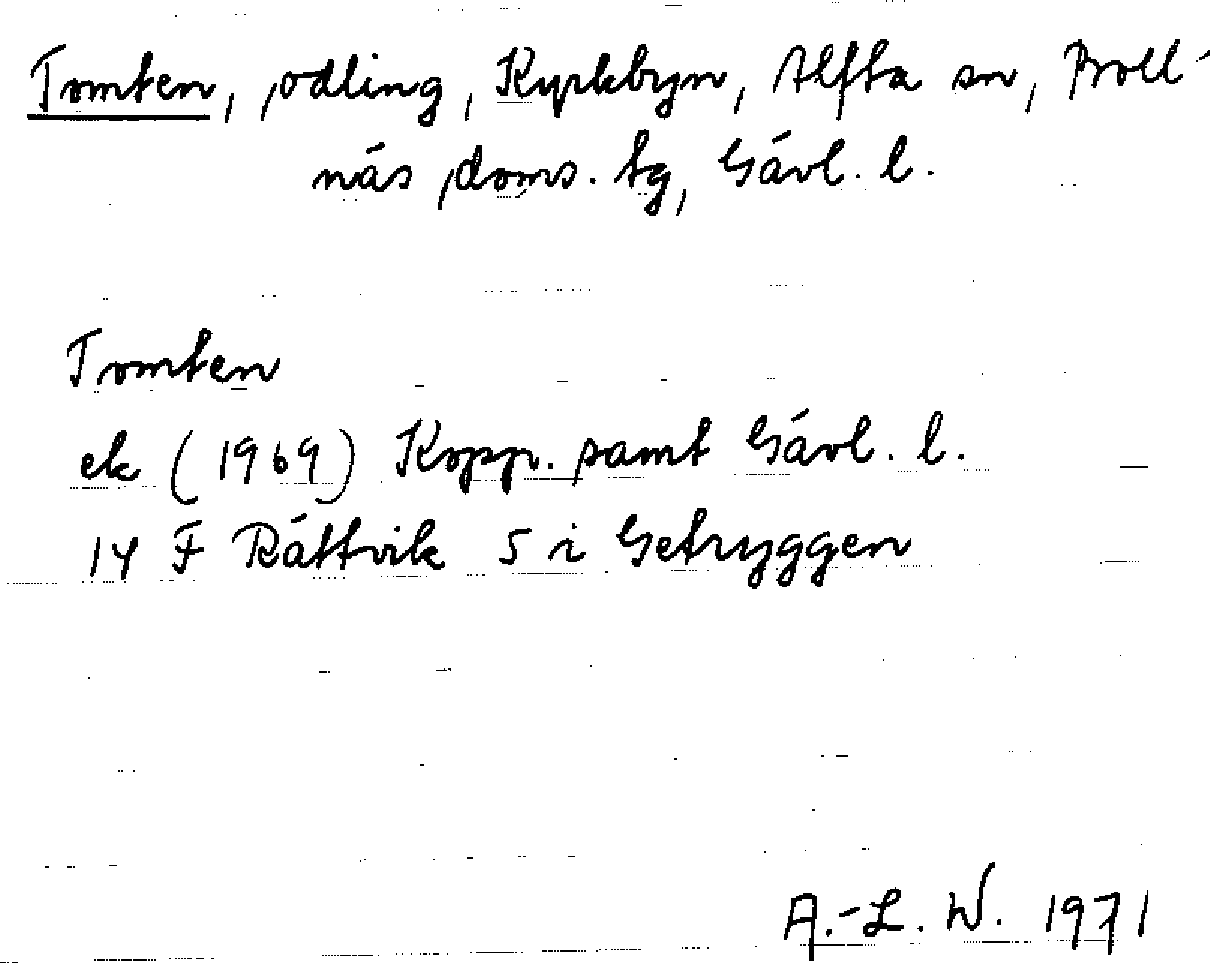 Tomten, odling, Kyrkbyn, Alfta sn, Boll-
näs doms. tg, Gävl. l.
Tomten
ek (1969) Kopp. samt Gävl. l.
14 F Rättvik 5 i Getryggen
A.-L. W. 1971